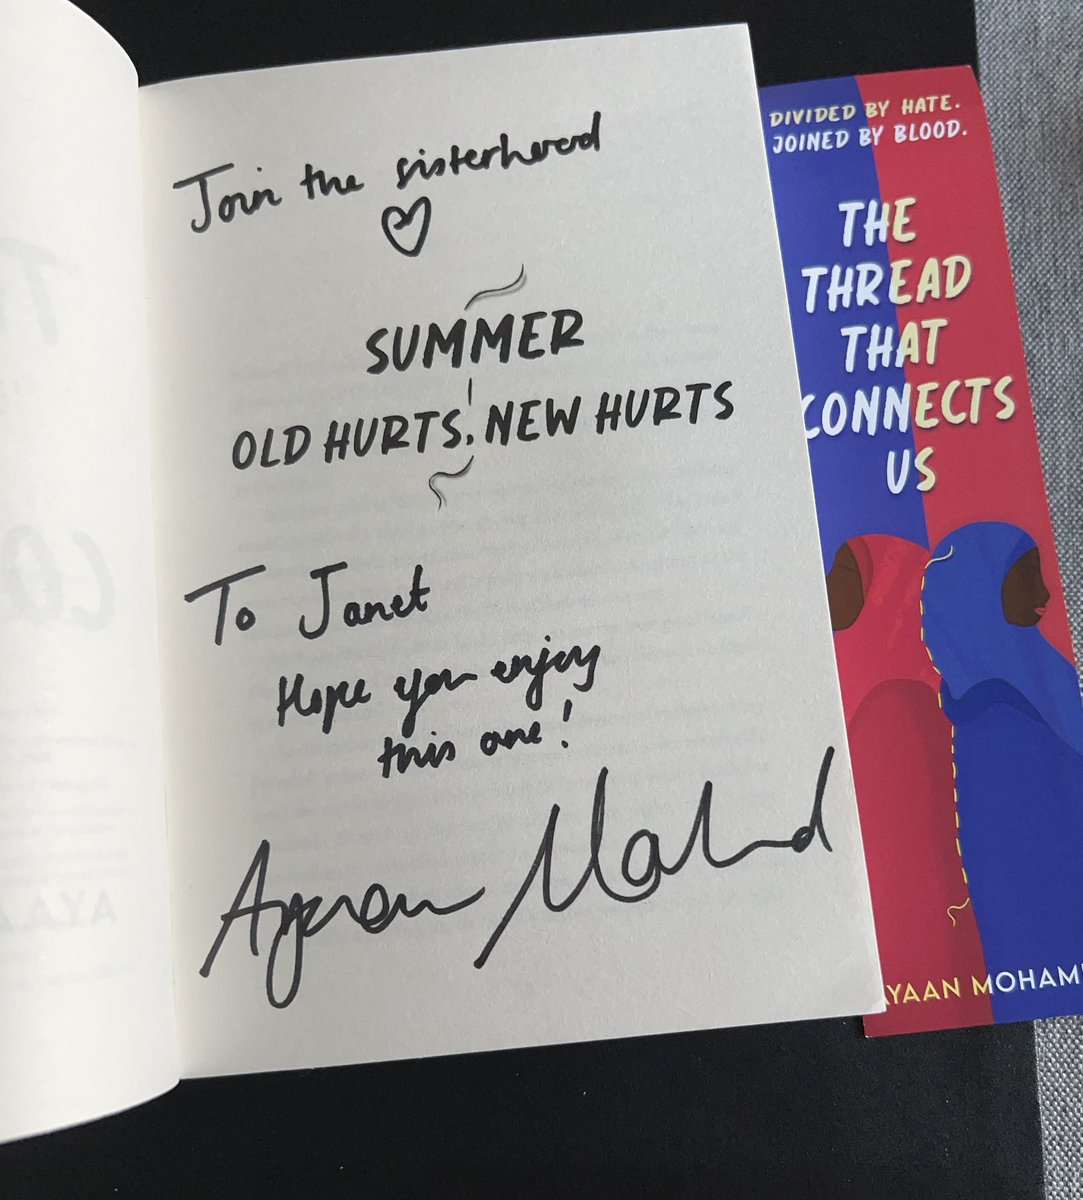 Join the sisterhood
SUMMER
OLD HURTS, NEW HURTS
To Janet
Hope you enjoy
this one!
DIVIDED BY HATE.
JOINED BY BLOOD.
THE
THREAD
THAT
CONNECTS
US
AYAAN MOHAM
AYA